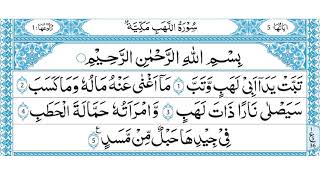 اٰیاتُهَا 5 سُوْرَةُ اللَّهَبِ مَکِّیَّةٌ رُکُوْعُهَا 1
بِسْمِ اللّٰهِ الرَّحْمٰنِ الرَّحِیْمِ
تَبَّتْ یَدَاۤ اَبِیْ لَهَبٍ وَّتَبَّ 1 مَاۤ اَغْنٰی عَنْهُ مَالُهٗ وَمَا کَسَبَ 2
سَیَصْلٰی نَارًا ذَاتَ لَهَبٍ 3 وَّامْرَاَتُهٗ حَمَّالَةَ الْحَطَبِ 4
فِیْ جِیْدِهَا حَبْلٌ مِّنْ مَّسَدٍ 5